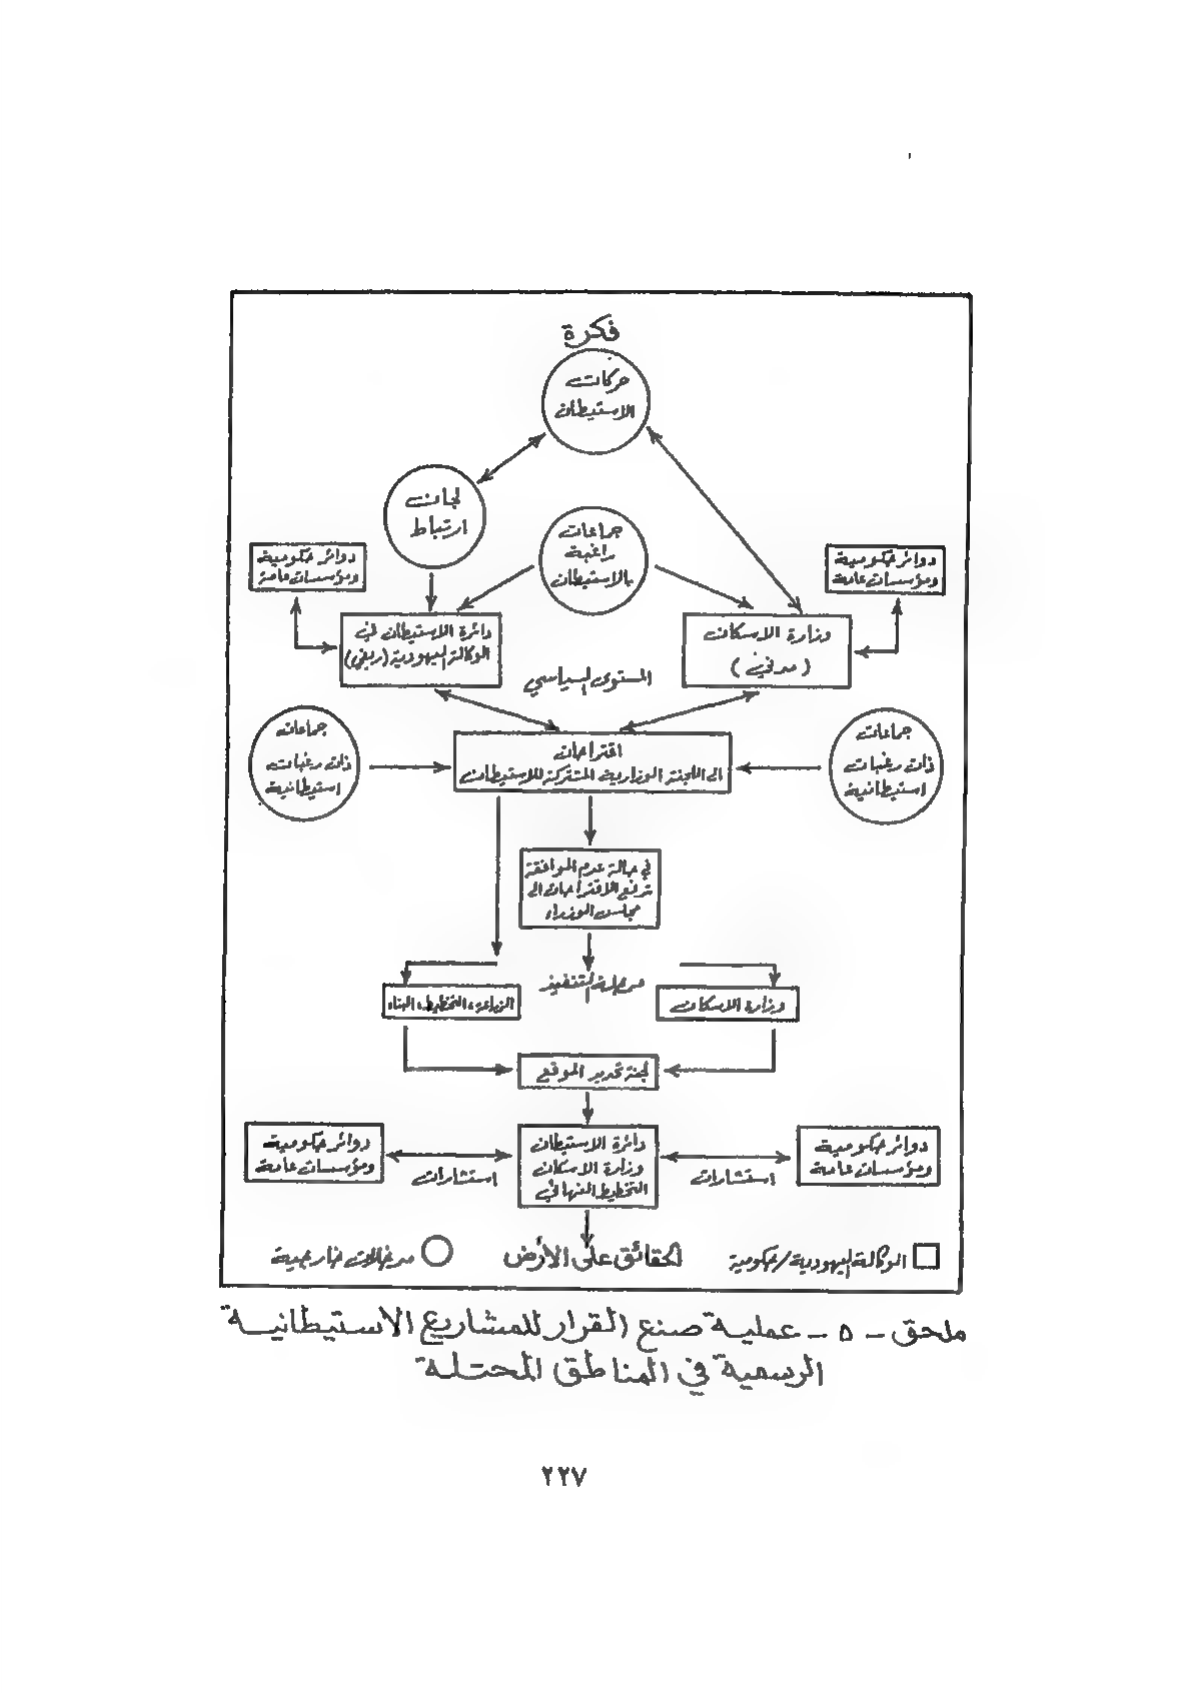 فكرة
حركات
الاستيطان
لجان
ارتباط
جماعات
راغبة
بالاستيطان
دوائر حكومية
ومؤسسات عامة
دوائر حكومية
ومؤسسات عامة
وزارة الاسكان
(مدني)
دائرة الاستيطان في
الوكالة اليهودية (ريفي)
المستوى السياسي
جماعات
ذات رغبات
استيطانية
اقتراحات
الى اللجنة الوزارية المشتركة للاستيطان
جماعات
ذات رغبات
استيطانية
في حالة عدم الموافقة
ترفع الاقتراحات الى
مجلس الوزراء
مرحلة التنفيذ
وزارة الاسكان
الزراعة، التخطيط، البناء
لجنة تحديد الموقع
دوائر حكومية
ومؤسسات عامة
استشارات
دائرة الاستيطان
وزارة الاسكان
التخطيط النهائي
استشارات
دوائر حكومية
ومؤسسات عامة
الوكالة اليهودية/حكومية
الحقائق على الأرض
مدخلات خارجية
ملحق - ٥ - عملية صنع القرار للمشاريع الاستيطانية
الرسمية في المناطق المحتلة
٢٢٧